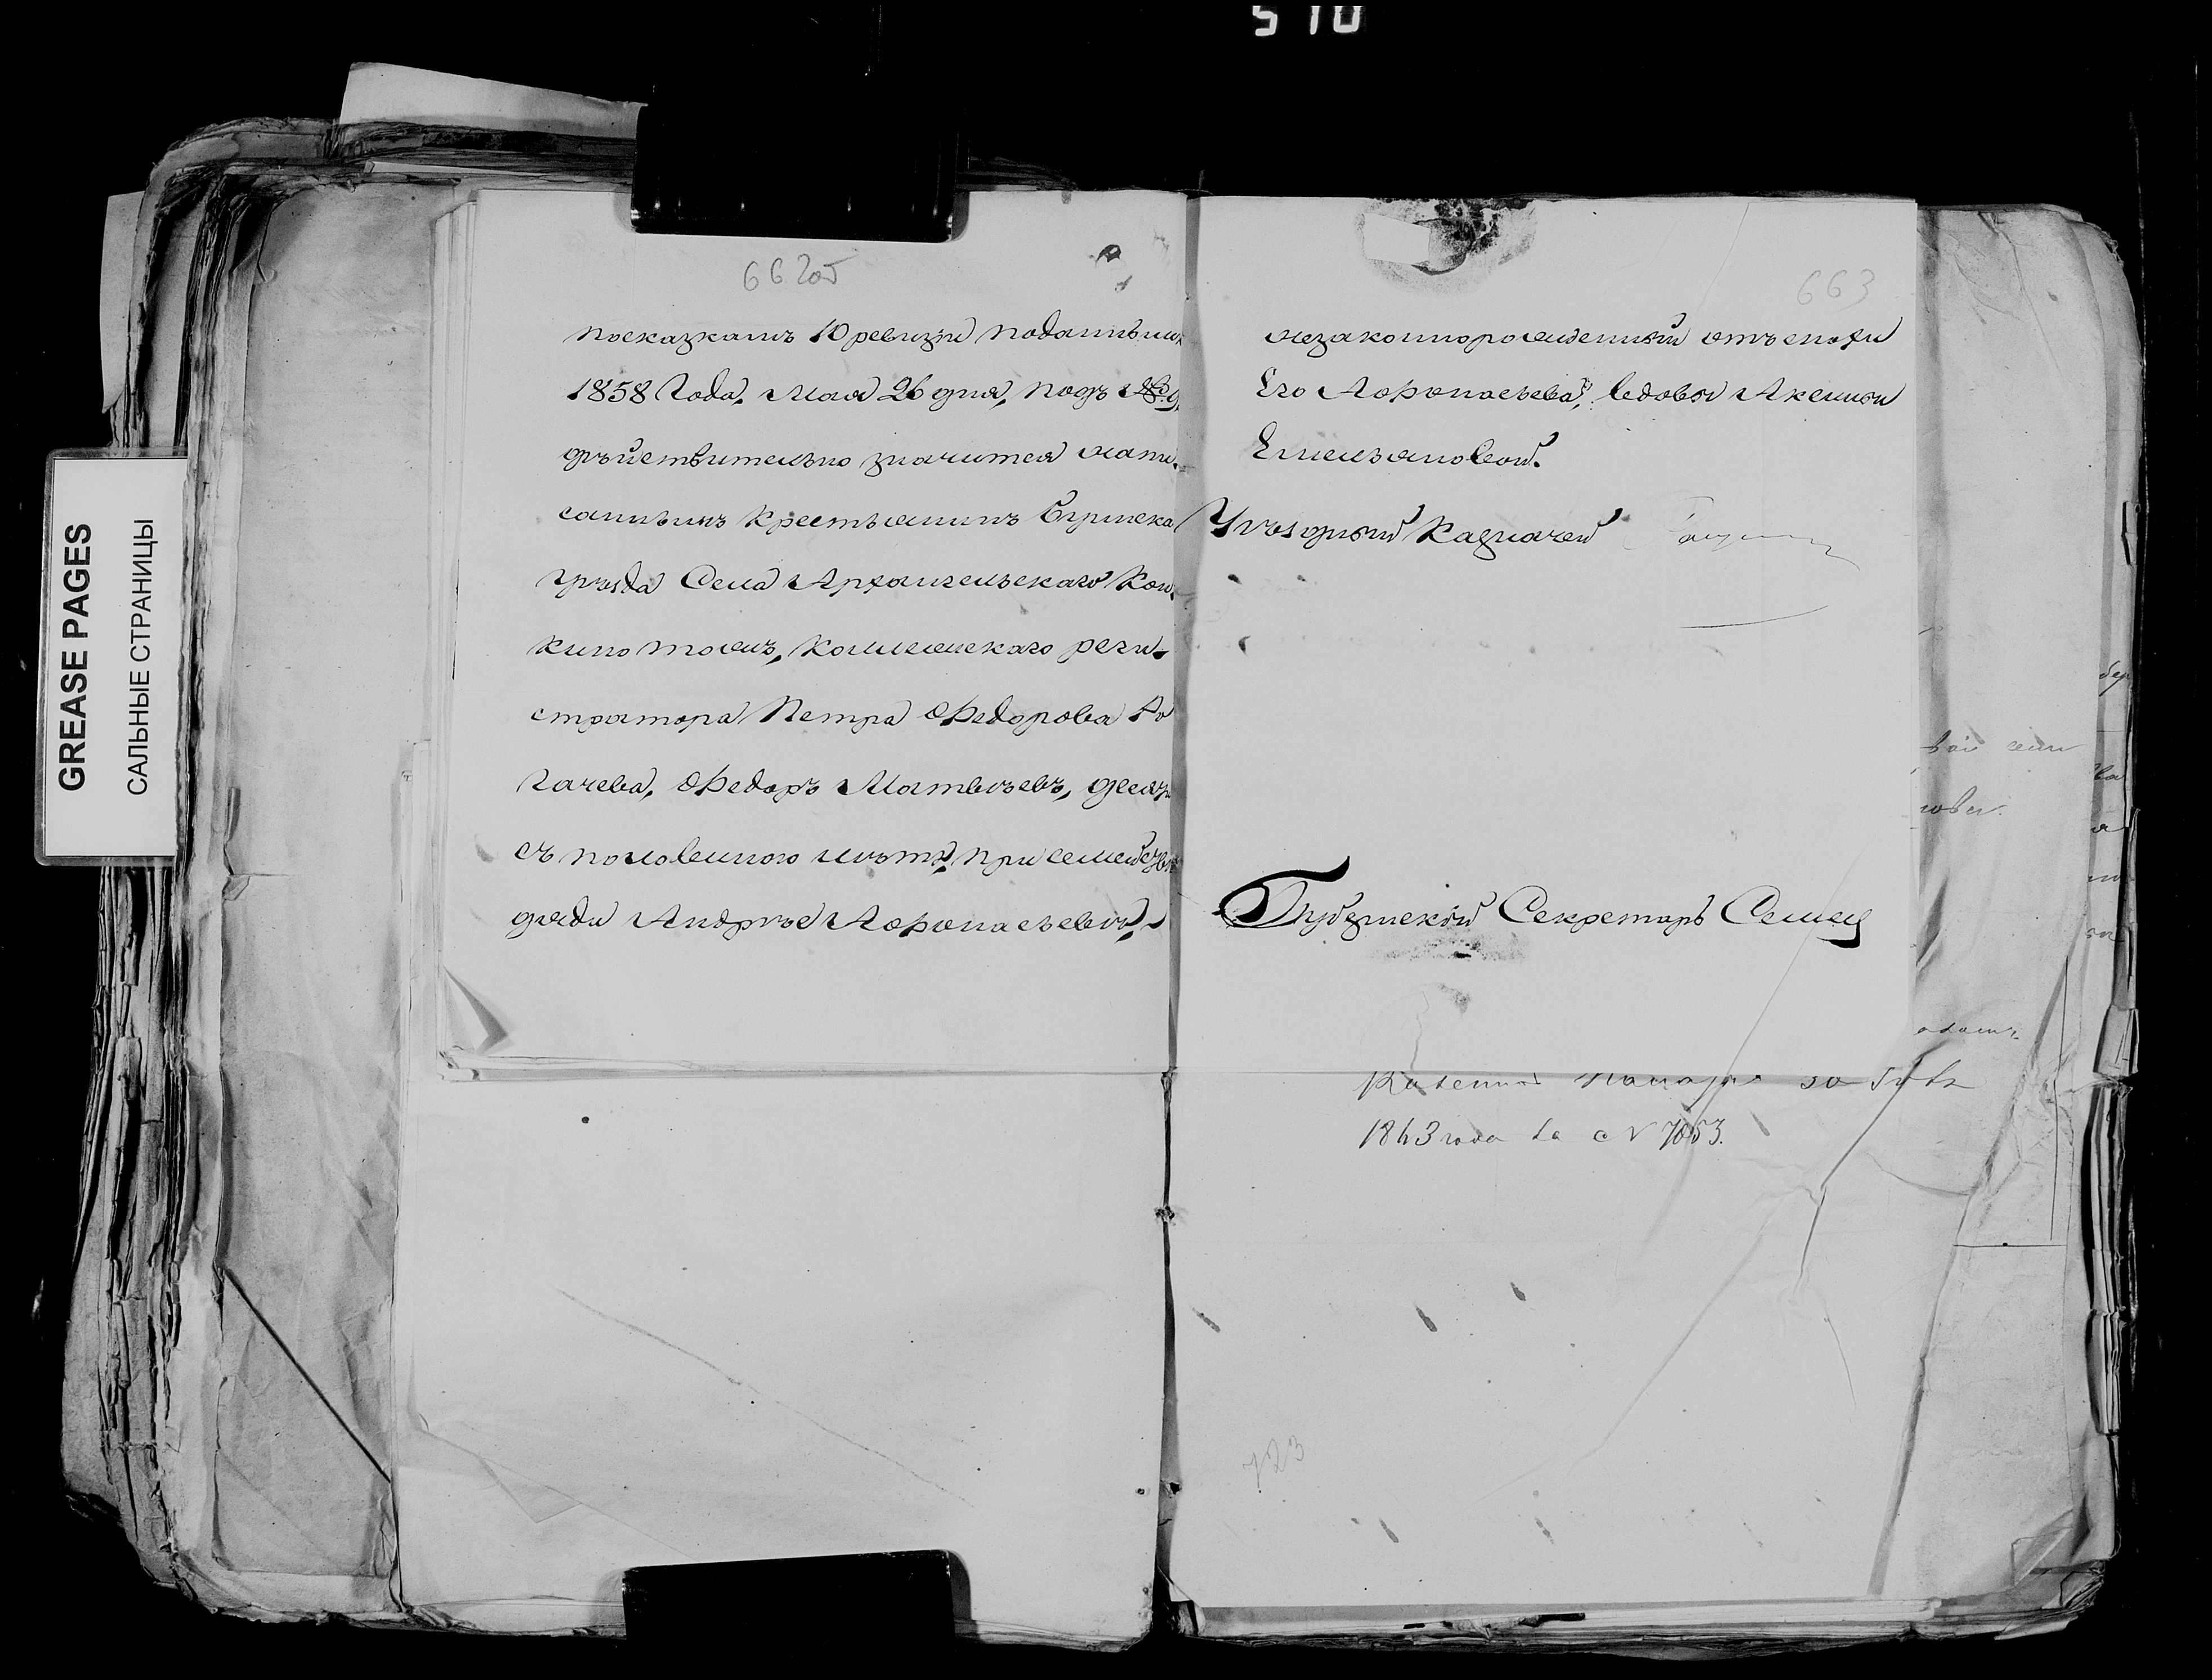 510
GREASE PAGES
САЛЬНЫЕ СТРАНИЦЫ
662об
посказкамъ 10 ревизіи поданнымъ
1858 Года, Мая 26 дня, подъ №
дѣйствительно значится напи-
саннымъ крестьянинъ
уѣзда Села Архангельскаго Кон-
кино тожъ, коллежскаго реги-
стратора Петра Ѳедорова Ро
гачева, Ѳедоръ Матвѣевъ, десяти
съ половиною лѣтъ, при семействѣ
дяди Андрѣе Аѳонасьевѣ,
663
незаконнорожденный отъ снохи
Его Аѳонасьева, вдовы Аксиньи
Емельяновой.
Уѣздный Казначей
Губернскій Секретарь Семец
Казенной Палаты за
1863 года за № 7053.
723